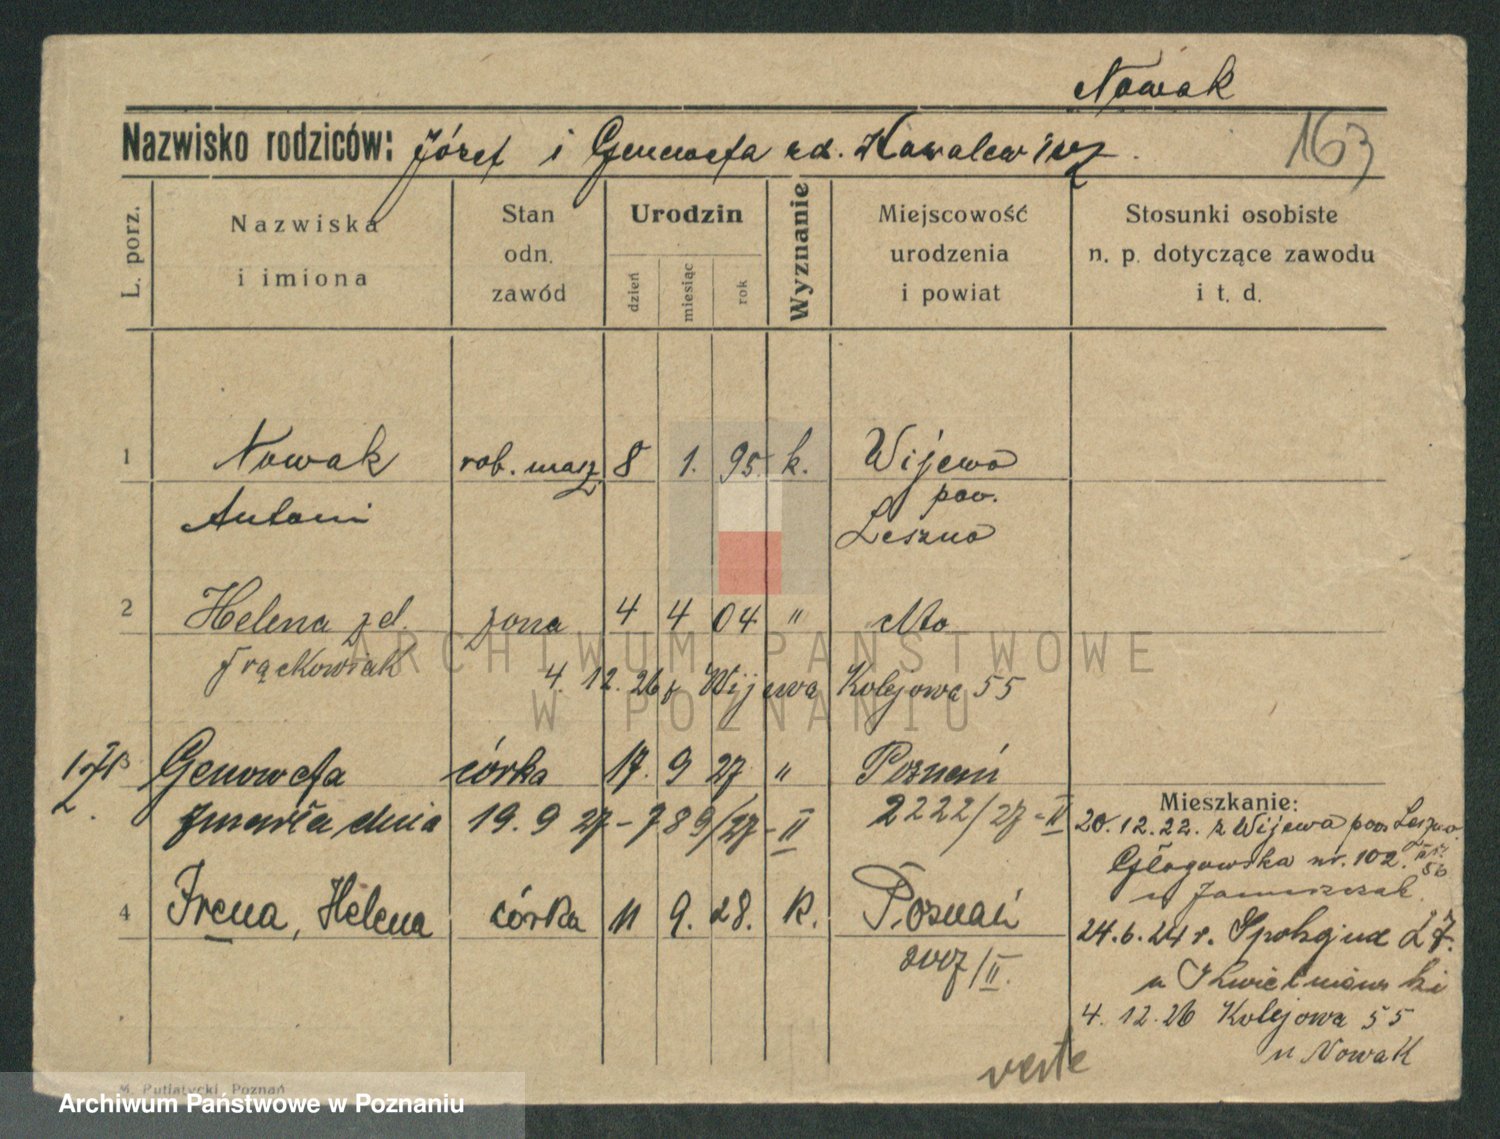 Nowak
Nazwisko rodziców: Józef i Genowefa zd. Kawalewicz.
163
L. porz.
Nazwiska
i imiona
Stan
odn.
zawód
Urodzin
dzień
miesiąc
rok
Wyznanie
Miejscowość
urodzenia
i powiat
Stosunki osobiste
n. p. dotyczące zawodu
i t. d.
1 Nowak rob. masz 8 1. 95. k. Wijewo
pow.
Antoni Leszno
2 Helena zd. żona 4 4 04 " dto
Frąckowiak
4. 12. 26 z Wijewa Kolejowa 55
3 Genowefa córka 17. 9 27 " Poznań
zmarła dnia 19. 9 27 - 789/27 - II 2222/27 - II
4 Irena, Helena córka 11 9. 28. k. Poznań
/II.
Mieszkanie:
20. 12. 22. z Wijewa pow. Leszno
Głogowska nr. 102.
u Januszczak
24. 6. 24 r. Spokojna 27.
u Kwietniewski
4. 12. 26 Kolejowa 55
u Nowak
verte
M. Putiatycki, Poznań
ARCHIWUM PAŃSTWOWE
W POZNANIU
Archiwum Państwowe w Poznaniu